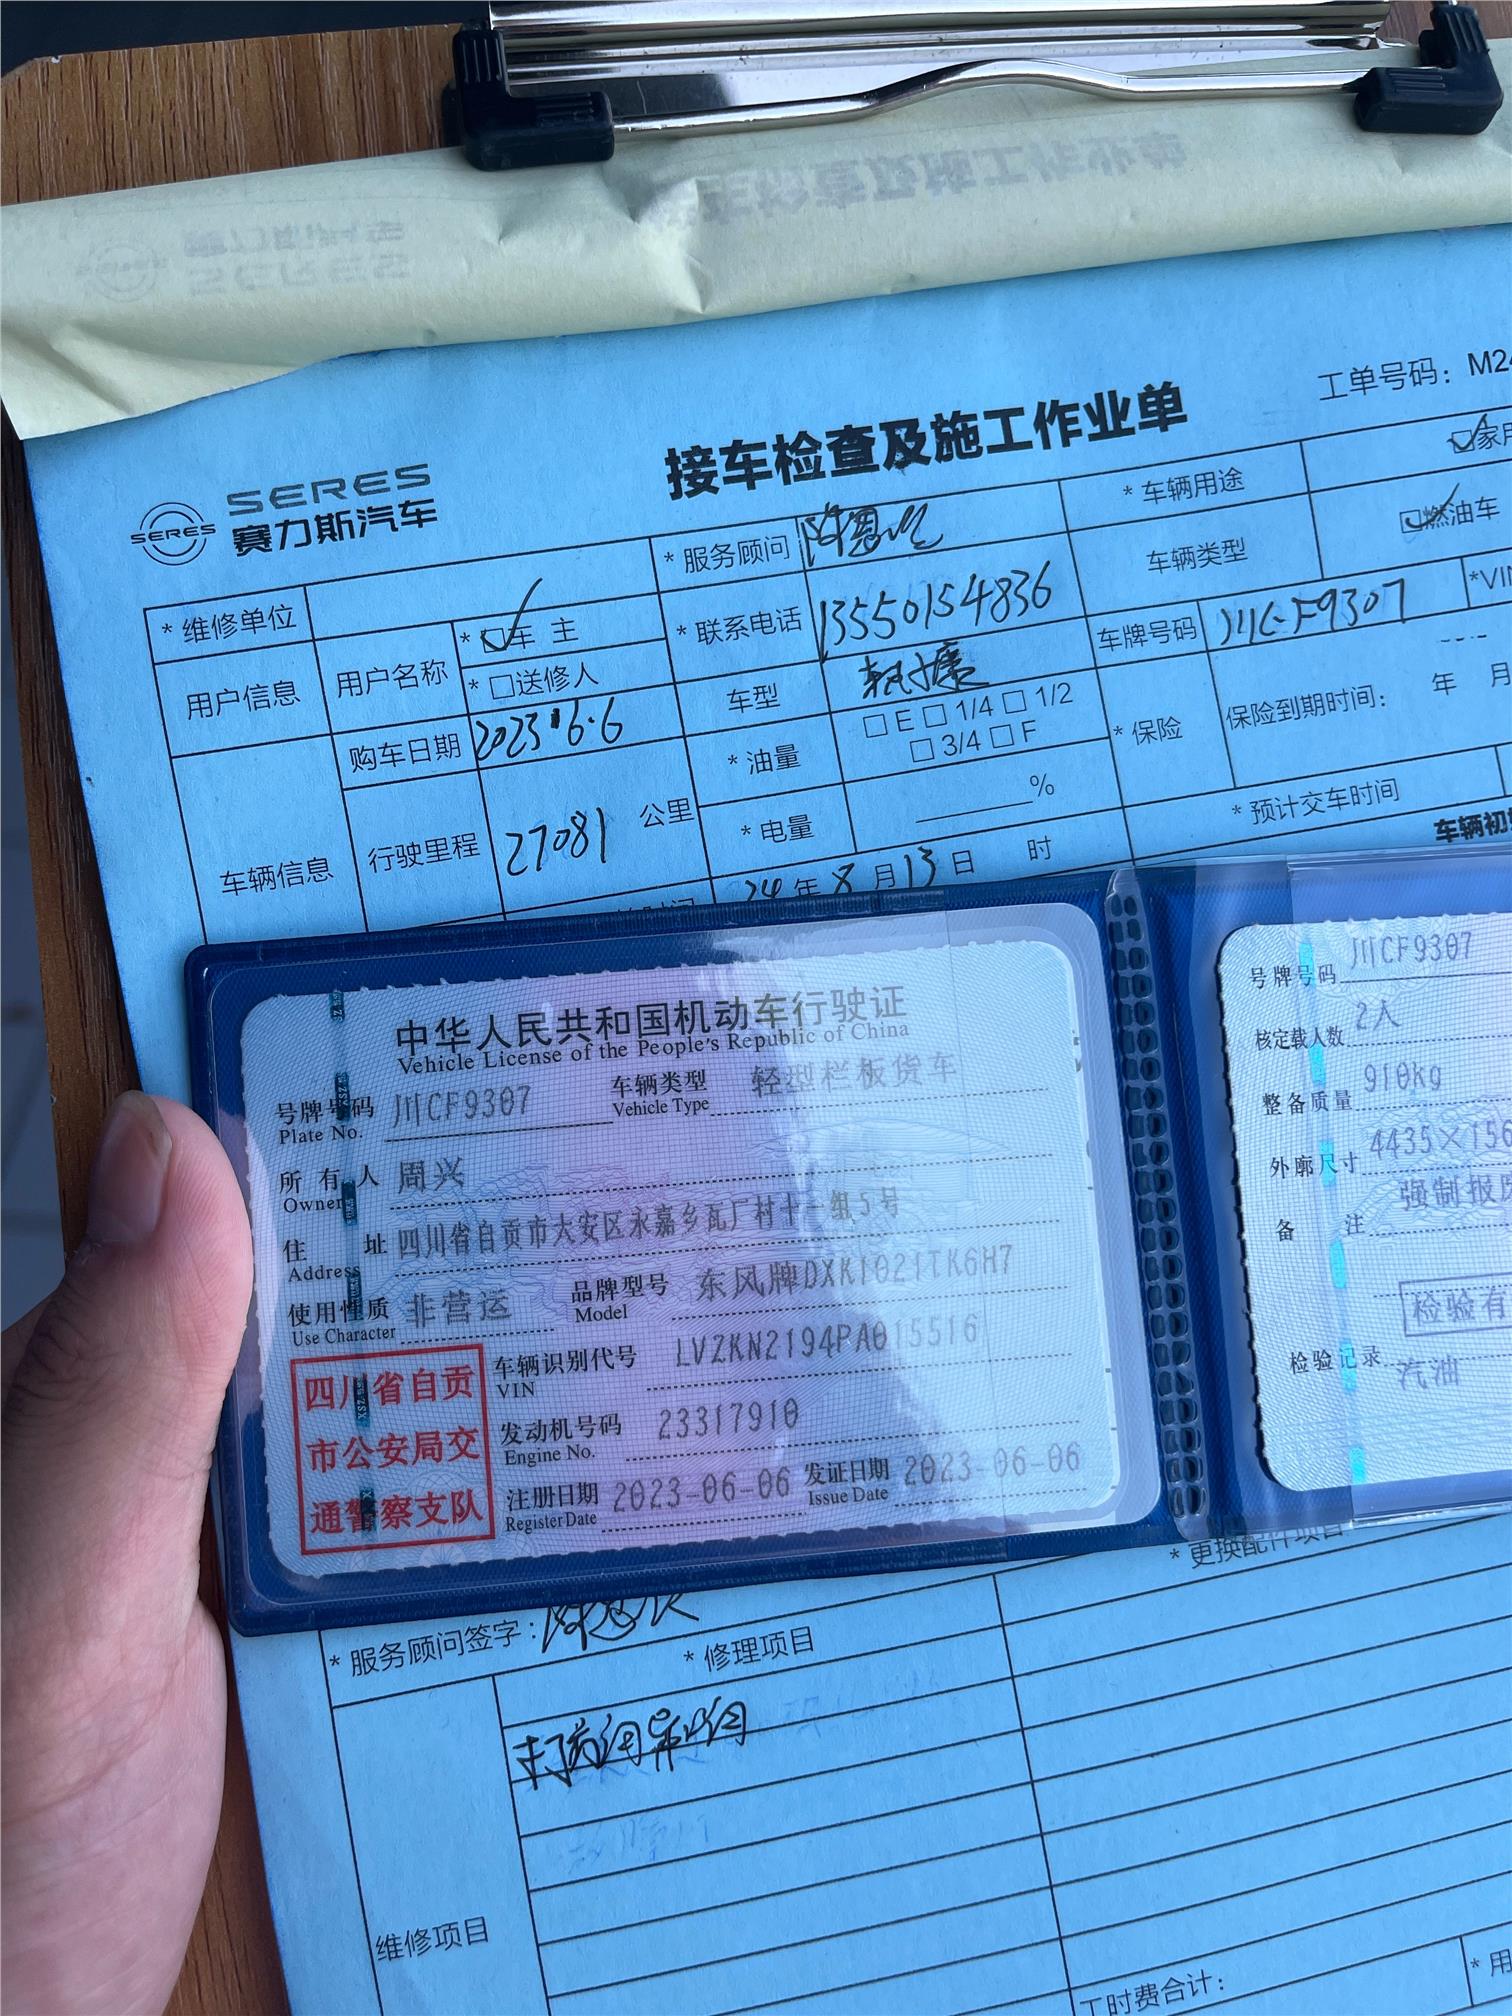 工单号码：M24
接车检查及施工作业单
SERES
SERES
赛力斯汽车
* 维修单位
* 服务顾问
* 车辆用途
家用
用户信息
用户名称
* 车主
* □送修人
* 联系电话 13550154836
车辆类型
燃油车
车牌号码 川CF9307
*VIN
车辆信息
购车日期 2023.6.6
车型
* 油量
□ E □ 1/4 □ 1/2
□ 3/4 □ F
* 保险
保险到期时间： 年 月
行驶里程 27081 公里
* 电量
%
* 预计交车时间
24年8月13日 时
车辆初
中华人民共和国机动车行驶证
Vehicle License of the People's Republic of China
号牌号码 川CF9307 车辆类型 轻型栏板货车
Plate No. Vehicle Type
所有人 周兴
Owner
住址 四川省自贡市大安区永嘉乡瓦厂村十一组5号
Address
使用性质 非营运 品牌型号 东风牌DXK1021TK6H7
Use Character Model
车辆识别代号 LVZKN2194PA015516
VIN
发动机号码 23317910
Engine No.
注册日期 2023-06-06 发证日期 2023-06-06
Register Date Issue Date
四川省自贡
市公安局交
通警察支队
号牌号码 川CF9307
核定载人数 2人
整备质量 910kg
外廓尺寸 4435×156
备注 强制报废
检验有
检验记录 汽油
* 更换配件项目
* 服务顾问签字：
* 修理项目
维修项目
工时费合计：
* 用